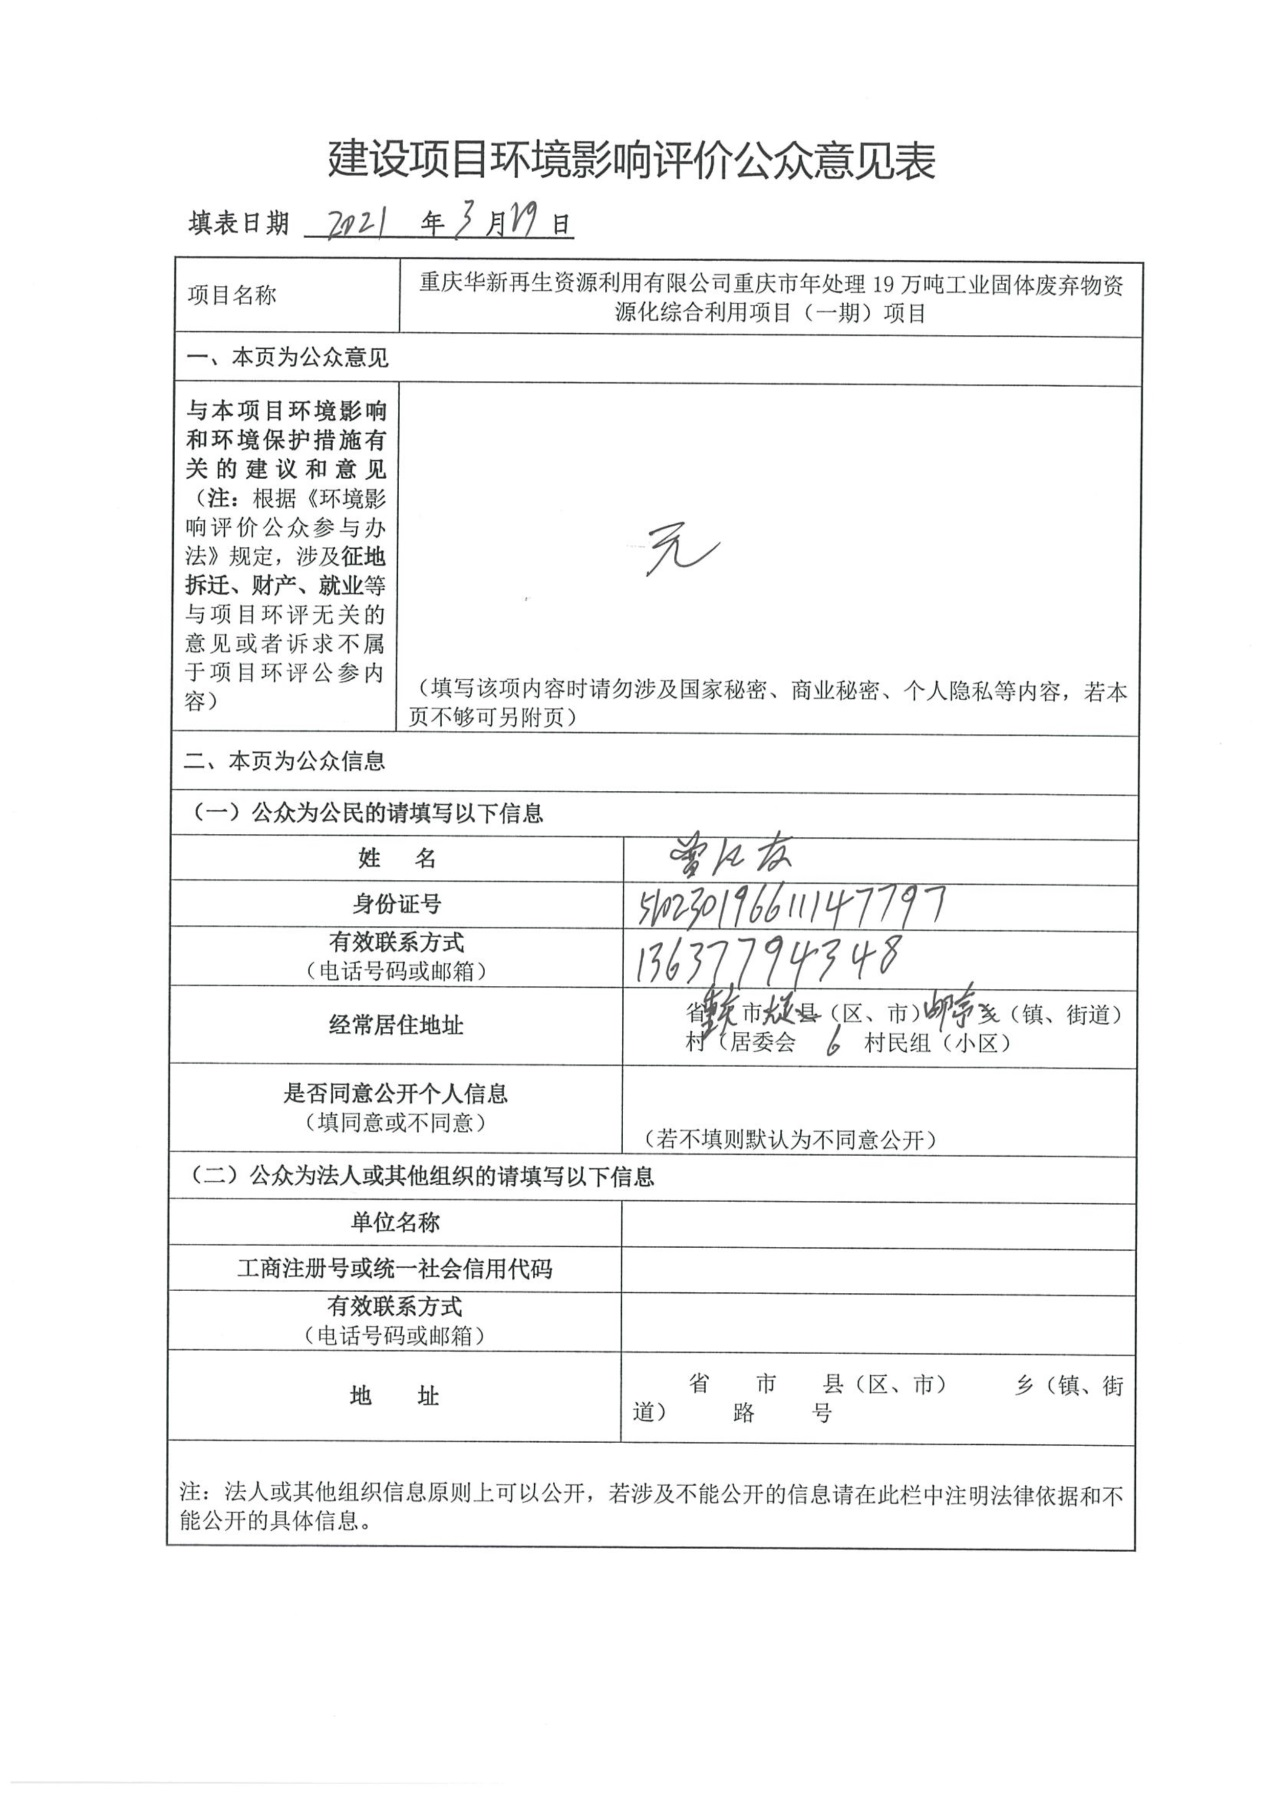 建设项目环境影响评价公众意见表
填表日期 2021 年 3 月 日
项目名称
重庆华新再生资源利用有限公司重庆市年处理 19 万吨工业固体废弃物资
源化综合利用项目（一期）项目
一、本页为公众意见
与本项目环境影响
和环境保护措施有
关的建议和意见
（注：根据《环境影
响评价公众参与办
法》规定，涉及征地
拆迁、财产、就业等
与项目环评无关的
意见或者诉求不属
于项目环评公参内
容）
无
（填写该项内容时请勿涉及国家秘密、商业秘密、个人隐私等内容，若本
页不够可另附页）
二、本页为公众信息
（一）公众为公民的请填写以下信息
姓 名
身份证号
510230196611147797
有效联系方式
（电话号码或邮箱）
13637794348
经常居住地址
省重庆市大足县（区、市）邮亭乡（镇、街道）
村（居委会 6 村民组（小区）
是否同意公开个人信息
（填同意或不同意）
（若不填则默认为不同意公开）
（二）公众为法人或其他组织的请填写以下信息
单位名称
工商注册号或统一社会信用代码
有效联系方式
（电话号码或邮箱）
地 址
省 市 县（区、市） 乡（镇、街
道） 路 号
注：法人或其他组织信息原则上可以公开，若涉及不能公开的信息请在此栏中注明法律依据和不
能公开的具体信息。